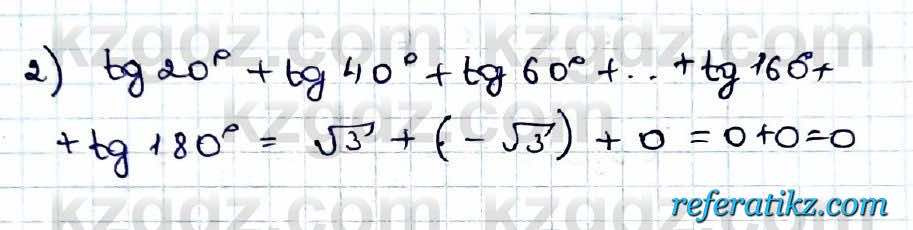 2) tg 20° + tg 40° + tg 60° + .. + tg 160° +
+ tg 180° = √3 + (-√3) + 0 = 0+0=0
kzgdz.com
referatikz.com